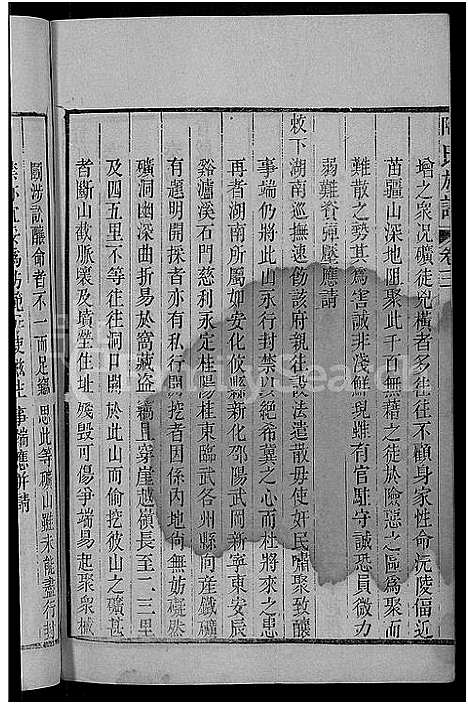 陳氏族譜 卷三
增之眾況礦徒兇橫者多往往不顧身家性命沅陵偪近
苗疆山深地阻聚此千百無藉之徒於險惡之區為聚而
難散之勢其為害誠非淺鮮現雖有官駐守誠恐員微力
弱難資彈壓應請
敕下湖南巡撫速飭該府親往設法遣散毋使奸民嘯聚致釀
事端將此山永行封禁以絕希冀之心而杜將來之患
再者湖南所屬如安化攸縣新化邵陽武岡新寧東安辰
谿瀘溪石門慈利永定桂陽桂東臨武各州縣向產鐵礦
有已經題明採挖者亦有私行開挖者因係內地尚無妨礙然
礦洞幽深曲折易於窩藏盜竊且穿崖越嶺長至二三里
及四五里不等往往洞口開於此山而偷挖彼山之礦甚
者斷山截脈壞及墳塋住址殘毀可傷爭端易起聚眾械
鬭涉訟釀命者不一而足竊思此等礦山雖未能盡行封
禁亦宜妥為防範至使滋生事端應併請